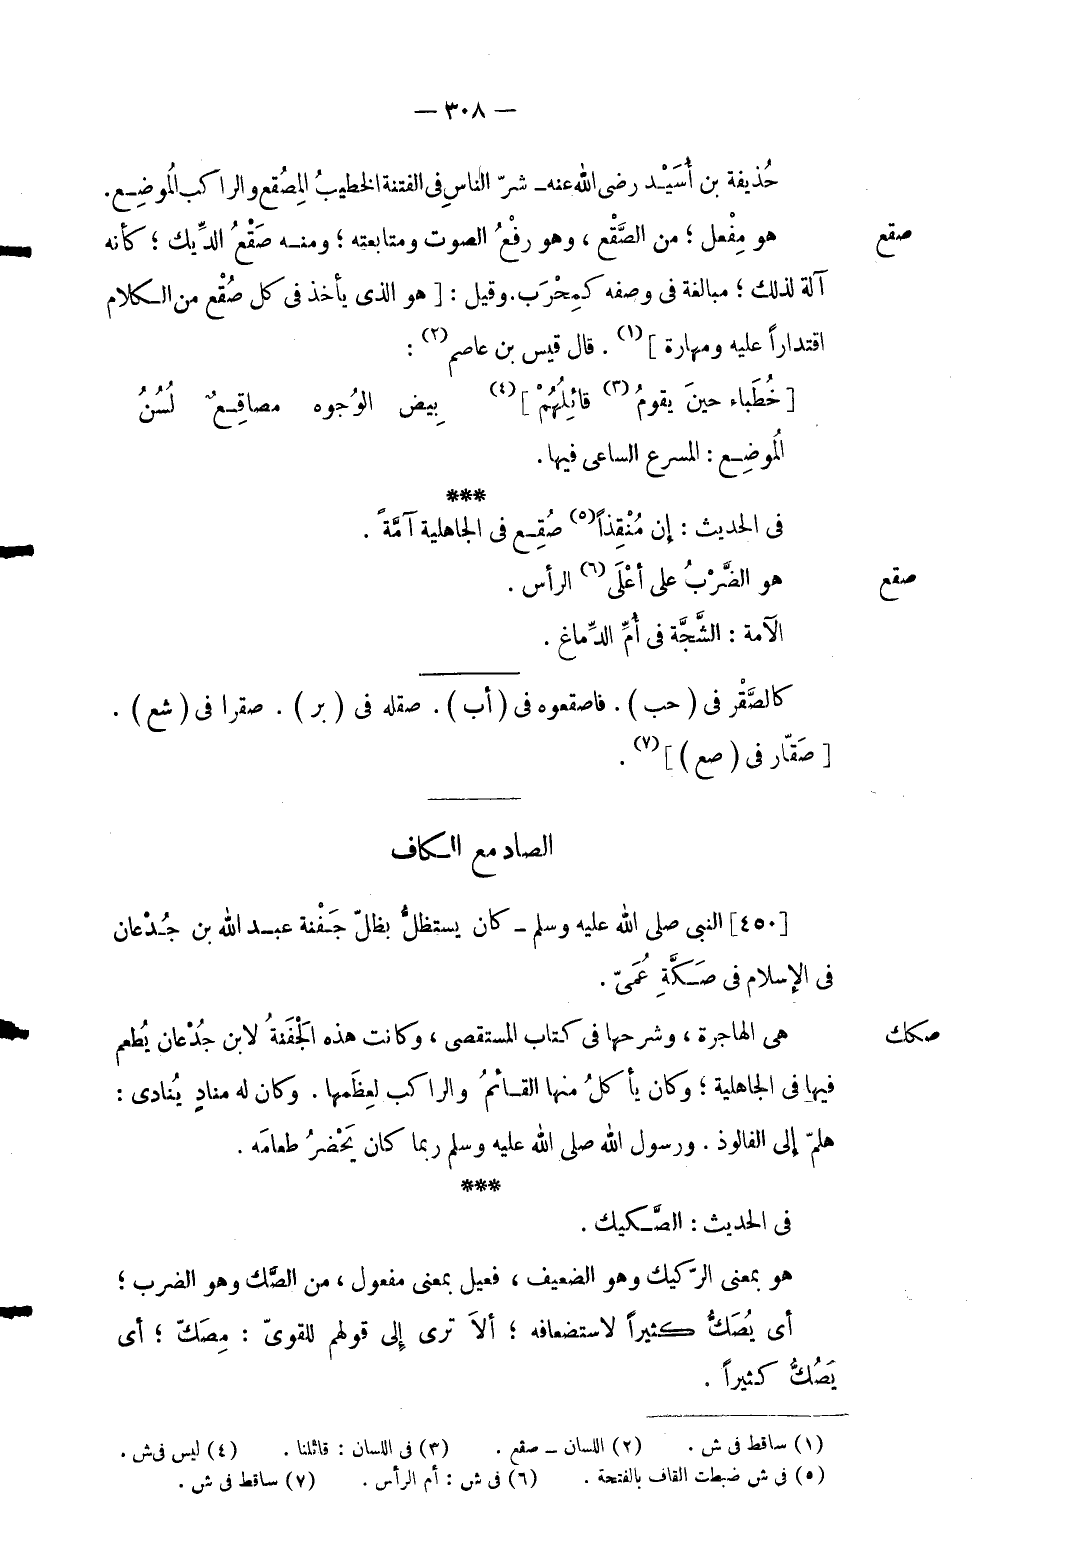 — ٣٠٨ —
حُذيفة بن أُسَيْد رضى الله عنه ـ شرّ الناسِ فى الفتنة الخطيبُ المِصْقع والراكب المُوضِع.
صقع هو مِفْعل ؛ من الصَّقْع ، وهو رفْعُ الصوت ومتابعته ؛ ومنه صَقْعُ الدِّيك ؛ كأنه
آلة لذلك ؛ مبالغة فى وصفه كمِحْرَب. وقيل : [ هو الذى يأخذ فى كل صُقْع من الكلام
اقتداراً عليه ومهارة ](١) . قال قيس بن عاصم(٢) :
[ خُطَباء حينَ يقومُ(٣) قائِلُهُمْ ](٤) بِيض الوُجوه مصاقِعٌ لُسُنُ
المُوضِع : المسرع الساعى فيها.
***
فى الحديث : إن مُنْقِذاً(٥) صُقِع فى الجاهلية آمَّةً .
صقع هو الضَّرْبُ على أعْلَى(٦) الرأس .
الآمة : الشَّجَّة فى أُمِّ الدِّماغ .
كالصَّقْر فى ( حب ) . فاصقعوه فى ( أب ) . صقله فى ( بر ) . صقرا فى ( شع ) .
[ صَقّار فى ( صع ) ](٧) .
الصاد مع الكاف
[٤٥٠] النبى صلى الله عليه وسلم ـ كان يستظلُّ بظلّ جَفْنة عبد الله بن جُدْعان
فى الإسلام فى صَكَّةِ عُمَىّ .
صكك هى الهاجرة ، وشرحها فى كتاب المستقصى ، وكانت هذه الجْفَنةُ لابن جُدْعان يُطعم
فيها فى الجاهلية ؛ وكان يأكلُ منها القائمُ والراكب لعِظَمها . وكان له منادٍ يُنادى :
هلمّ إلى الفالوذ . ورسول الله صلى الله عليه وسلم ربما كان يَحْضرُ طعامَه .
***
فى الحديث : الصَّكيك .
هو بمعنى الرّكيك وهو الضعيف ، فعيل بمعنى مفعول ، من الصَّك وهو الضرب ؛
أى يُصَكُّ كثيراً لاستضعافه ؛ ألاَ ترى إلى قولهم للقوىّ : مِصَكّ ؛ أى
يَصُكُّ كثيراً .
(١) ساقط فى ش . (٢) اللسان ــ صقع . (٣) فى اللسان : قائلنا . (٤) ليس فى ش .
(٥) فى ش ضبطت القاف بالفتحة . (٦) فى ش : أم الرأس . (٧) ساقط فى ش .